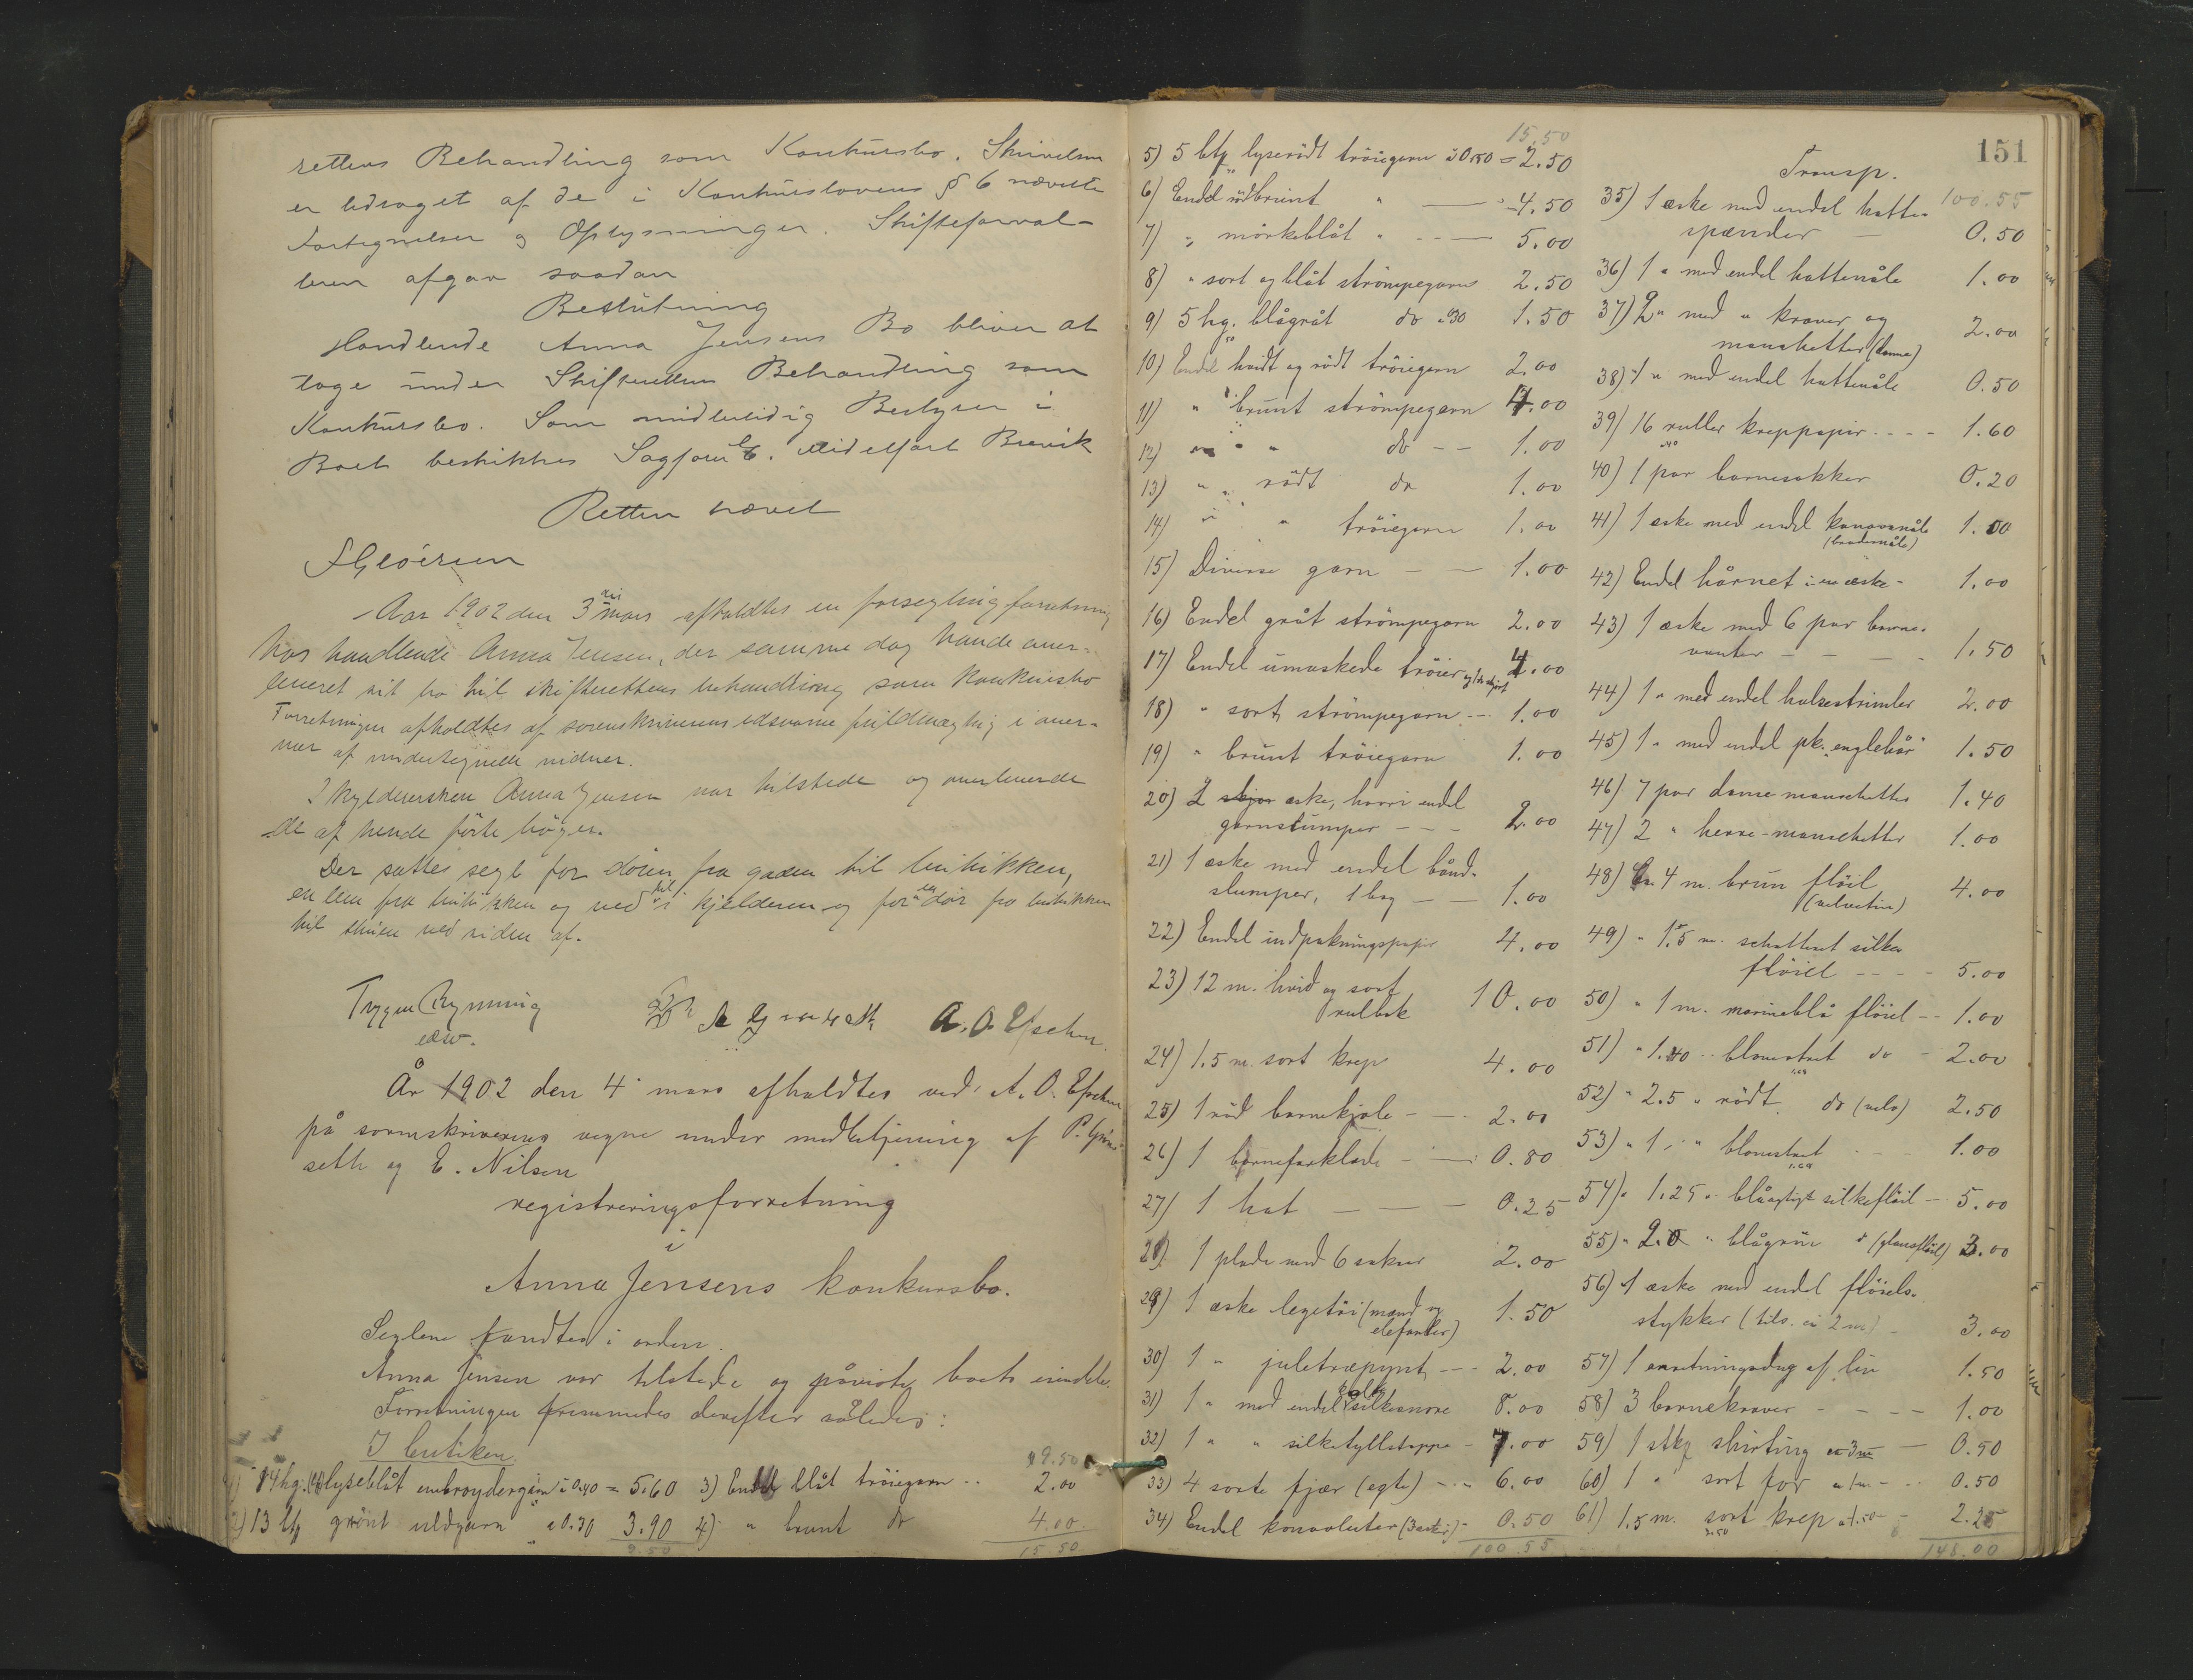 rettens Behandling som Konkursbo. Skrivelsen
er ledsaget af de i Konkurslovens § 6 nævnte
Fortegnelser og Oplysninger. Skifteforval-
teren afgav saadan
Beslutning
Handlende Anna Jensens Bo bliver at
tage under Skifterettens Behandling som
Konkursbo. Som midlertidig Bestyrer i
Boet beskikkes Sagfører E. Midelfart Brevik
Retten hævet
Aar 1902 den 3die mars afholdtes en forseglingsforretning
hos handlende Anna Jensen, der samme dag havde over-
leveret sit bo til skifterettens behandling som konkursbo
Forretningen afholdtes af sorenskriverens edsvorne fuldmægtig i over-
vær af undertegnede vidner.
Skyldnersken Anna Jensen var tilstede og overleverede
de af hende førte bøger.
Der sattes segl for døren fra gaden til butikken,
en lem fra butikken og ned til i kjelderen og for en dør fra butikken
til stuen ved siden af.
Trygve Rynning
edsv.
A. O. Efschen.
År 1902 den 4 mars afholdtes ved A. O. Efschen
på sorenskriverens vegne under medbetjening af P. Grini-
seth og E. Nilsen
registreringsforretning
i
Anna Jensens konkursbo.
Seglene fandtes i orden.
Anna Jensen var tilstede og påviste boets eiendele.
Forretningen fremmedes derefter således:
I butiken.
1) 14 hg. lyseblåt embroydergarn à 0.40 = 5.60
2) 13 hg grønt uldgarn à 0.30 3.90
9.50
9.50
3) Endel blåt trøiegarn .. 2.00
4) " brunt do 4.00
15.50
15.50
5) 5 hg lyserødt trøiegarn à 0.50 = 2.50
6) Endel rødbrunt " — 4.50
7) " mørkeblåt " — 5.00
8) " sort og blåt strømpegarn 2.50
9) 5 hg. blågråt do à 30 1.50
10) Endel hvidt og rødt trøiegarn 2.00
11) " brunt strømpegarn 4.00
12) " " do - - 1.00
13) " " rødt do 1.00
14) " " trøiegarn 1.00
15) Diverse garn — — 1.00
16) Endel gråt strømpegarn 2.00
17) Endel umaskede trøier 4.00
18) " sort strømpegarn -- 1.00
19) " brunt trøiegarn 1.00
20) 2 æske, hvori endel
garnstumper - - - 2.00
21) 1 æske med endel bånd-
stumper, 1 bog — — 1.00
22) Endel indpakningspapir 4.00
23) 12 m. hvid og sort
rulbak 10.00
24) 1.5 m. sort krep 4.00
25) 1 rød barnekjole - — 2.00
26) 1 barneforklæde - — 0.80
27) 1 hat — — — 0.25
28) 1 plade med 6 sakser 2.00
29) 1 æske legetøi (mænd og
elefanter) 1.50
30) 1 " juletræpynt - - 2.00
31) 1 " med endel silkesnore 8.00
32) 1 " " silketyllstoppe - 7.00
33) 4 sorte fjær (egte) - - - 6.00
34) Endel konvoluter (3 æsker) - 0.50
100.55
151
Transp.
100.55
35) 1 æske med endel hatte-
spænder — 0.50
36) 1 " med endel hattenåle 1.00
37) 2 " med " kraver og
manschetter (dame) 2.00
38) 1 " med endel hattenåle 0.50
39) 16 ruller kreppapir - - - - 1.60
40) 1 par barnesokker 0.20
41) 1 æske med endel kanavanåle 1.00
42) Endel hårnet i en æske - 1.00
43) 1 æske med 6 par barne-
vanter - — — - 1.50
44) 1 " med endel halsestrimler 2.00
45) 1 " med endel pk. englehår 1.50
46) 7 par dame-manschetter 1.40
47) 2 " herre-manschetter 1.00
48) 4 m. brun fløil
(velvetin) 4.00
49) " 1.5 m. schatteret silke-
fløiel - - - - 5.00
50) " 1 m. marineblå fløiel -- 1.00
51) " 1.40 " blomstret do - 2.00
52) " 2.5 " rødt do (velv) 2.50
53) " 1 " " blomstret - - 1.00
54) " 1.25 " blåagtigt silkefløil — 5.00
55) " 2.0 " blågrøn " (glansfløil) 3.00
56) 1 æske med endel fløiels-
stykker (tils. ca 2 m) - 3.00
57) 1 anretningsdug af lin 1.50
58) 3 barnekraver - - - — 1.00
59) 1 stk shirting ca 3 m — 0.50
60) 1 " sort for ca 1 m - - 0.50
61) 1.5 m. sort krep à 1.50 - 2.25
148.00